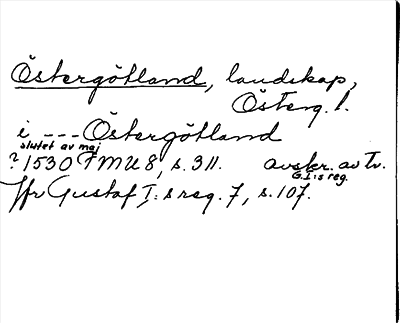 Östergötland, landskap,
Österg. l.
i --- Östergötland
slutet av maj
? 1530 FMU 8, s. 311. avskr. av Tv.
G.I:s reg.
Jfr Gustaf I:s reg. 7, s. 107.